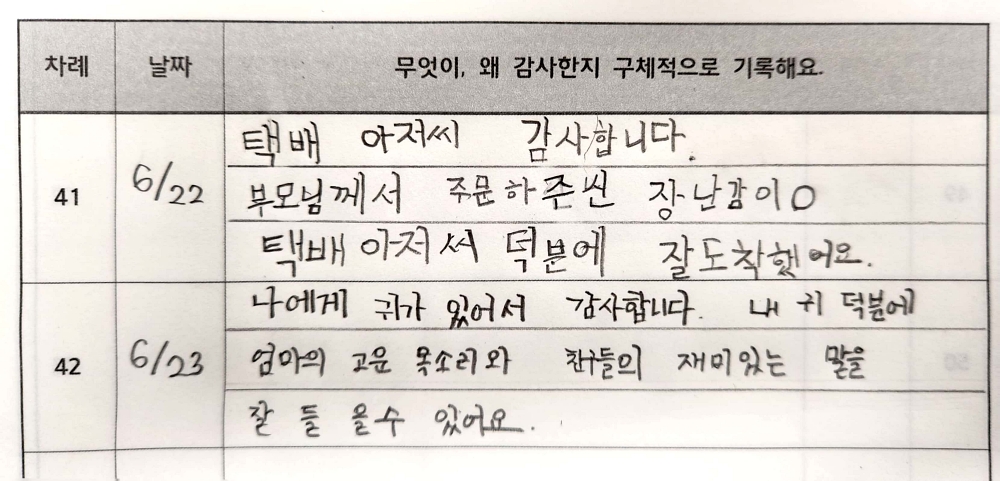 차례 날짜 무엇이, 왜 감사한지 구체적으로 기록해요.
41 6/22 택배 아저씨 감사합니다.
부모님께서 주문하주신 장난감이O
택배 아저씨 덕분에 잘도착했어요.
42 6/23 나에게 귀가 있어서 감사합니다. 내 귀 덕분에
엄마의 고운 목소리와 친구들의 재미있는 말을
잘 들 을수 있어요.